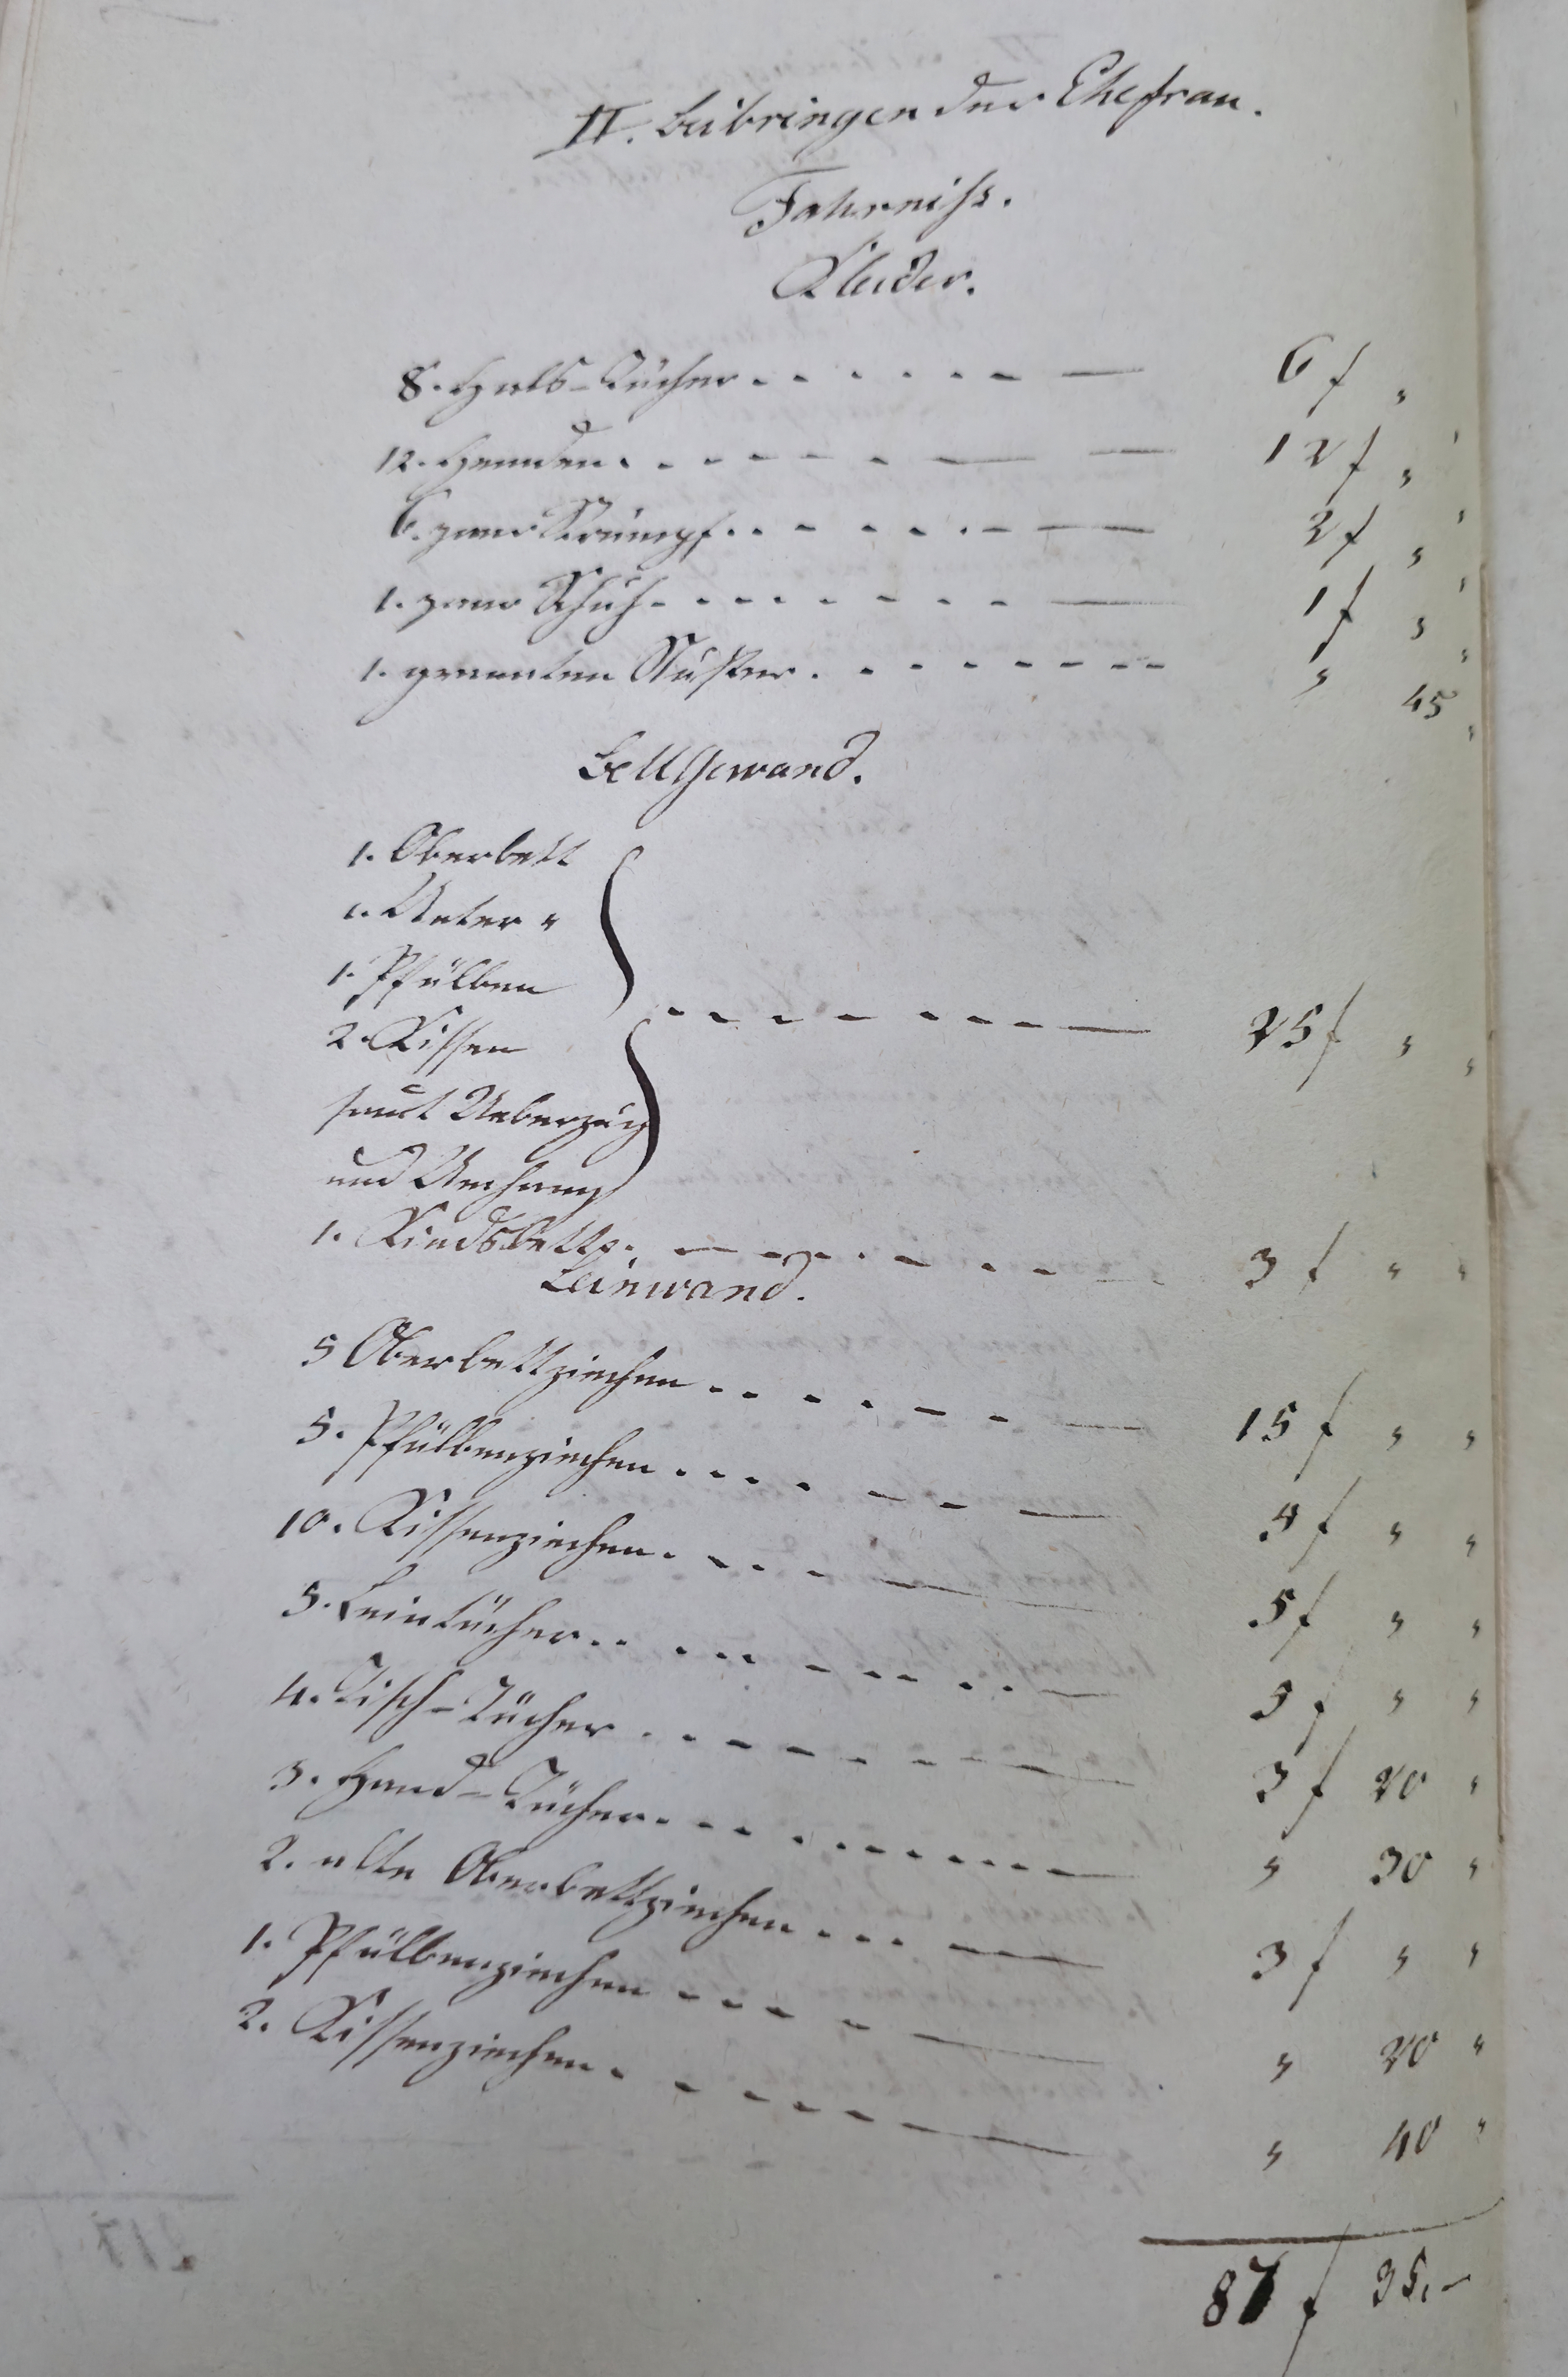 II. Beibringen der Ehefrau.
Fahrniß.
Kleider.
8. Hals-Tücher . . . . . . — — 6 f „
12. Hemden . . . . . . — — 12 f „ „
6. paar Strümpf . . . . . . — — 2 f „ „
1. paar Schuh . . . . . . — — 1 f „ „
1. granaten Nuster . . . . . . — — „ 45 „
Bettgewand.
1. Oberbett
1. Unter „
1. Pfülben
2. Kissen . . . . . . — — 25 f „ „
samt Ueberzug
und Umhang
1. Kindsbettl. . . . . . . — — 3 f „ „
Leinwand.
5 Oberbettziechen . . . . . . — — 15 f „ „
5. Pfülbenziechen . . . . . . — — 5 f „ „
10. Kissenziechen . . . . . . — — 5 f „ „
5. Leintücher . . . . . . — — 5 f „ „
4. Tisch-Tücher . . . . . . — — 3 f 20 „
3. Hand-Tücher . . . . . . — — „ 30 „
2. alte Oberbettziechen . . . — — 3 f „ „
1. Pfülbenziechen . . . — — „ 20 „
2. Kissenziechen . . . . . . — — „ 40 „
87 f 35. –